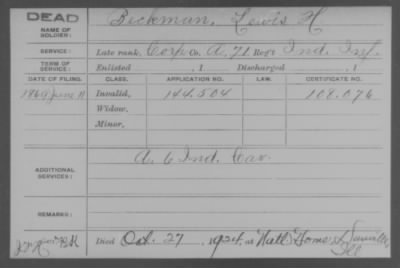 DEAD
NAME OF SOLDIER: Beckman, Lewis H
SERVICE: Late rank, Corp Co. A, 71 Reg't Ind. Inf.
TERM OF SERVICE: Enlisted , 1 Discharged , 1
DATE OF FILING. CLASS. APPLICATION NO. LAW. CERTIFICATE NO.
1869 June 11 Invalid, 144.504 108.076
Widow,
Minor,
ADDITIONAL SERVICES: A. 6 Ind. Cav.
REMARKS:
Died Oct. 27, 1924, at Nat'l Home, Danville,
Ill